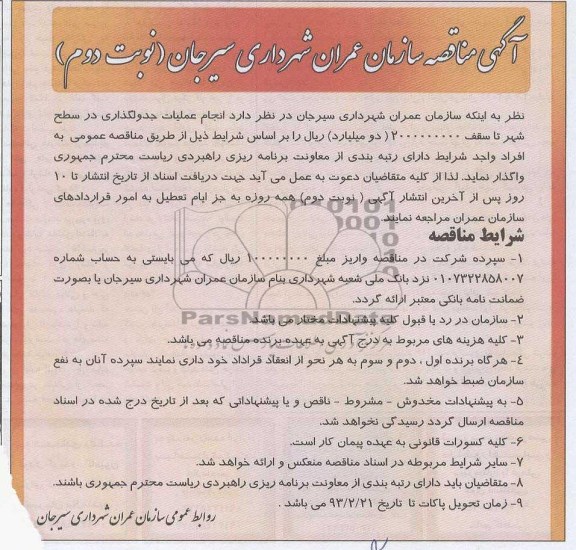 آگهی مناقصه سازمان عمران شهرداری سیرجان (نوبت دوم)
نظر به اینکه سازمان عمران شهرداری سیرجان در نظر دارد انجام عملیات جدولگذاری در سطح
شهر تا سقف ۲۰۰۰۰۰۰۰۰۰ ( دو میلیارد) ریال را بر اساس شرایط ذیل از طریق مناقصه عمومی به
افراد واجد شرایط دارای رتبه بندی از معاونت برنامه ریزی راهبردی ریاست محترم جمهوری
واگذار نماید. لذا از کلیه متقاضیان دعوت به عمل می آید جهت دریافت اسناد از تاریخ انتشار تا ۱۰
روز پس از آخرین انتشار آگهی ( نوبت دوم) همه روزه به جز ایام تعطیل به امور قراردادهای
سازمان عمران مراجعه نمایند.
شرایط مناقصه
۱- سپرده شرکت در مناقصه واریز مبلغ ۱۰۰۰۰۰۰۰۰ ریال که می بایستی به حساب شماره
۰۱۰۷۳۲۲۸۵۸۰۰۷ نزد بانک ملی شعبه شهرداری بنام سازمان عمران شهرداری سیرجان یا بصورت
ضمانت نامه بانکی معتبر ارائه گردد.
۲- سازمان در رد یا قبول کلیه پیشنهادات مختار می باشد.
ParsNamadData
۳- کلیه هزینه های مربوط به درج آگهی به عهده برنده مناقصه می باشد.
۴- هرگاه برنده اول ، دوم و سوم به هر نحو از انعقاد قراداد خود داری نمایند سپرده آنان به نفع
سازمان ضبط خواهد شد.
۵- به پیشنهادات مخدوش - مشروط - ناقص و یا پیشنهاداتی که بعد از تاریخ درج شده در اسناد
مناقصه ارسال گردد رسیدگی نخواهد شد.
۶- کلیه کسورات قانونی به عهده پیمان کار است.
۷- سایر شرایط مربوطه در اسناد مناقصه منعکس و ارائه خواهد شد.
۸- متقاضیان باید دارای رتبه بندی از معاونت برنامه ریزی راهبردی ریاست محترم جمهوری باشند.
۹- زمان تحویل پاکات تا تاریخ ۹۳/۲/۲۱ می باشد .
روابط عمومی سازمان عمران شهرداری سیرجان